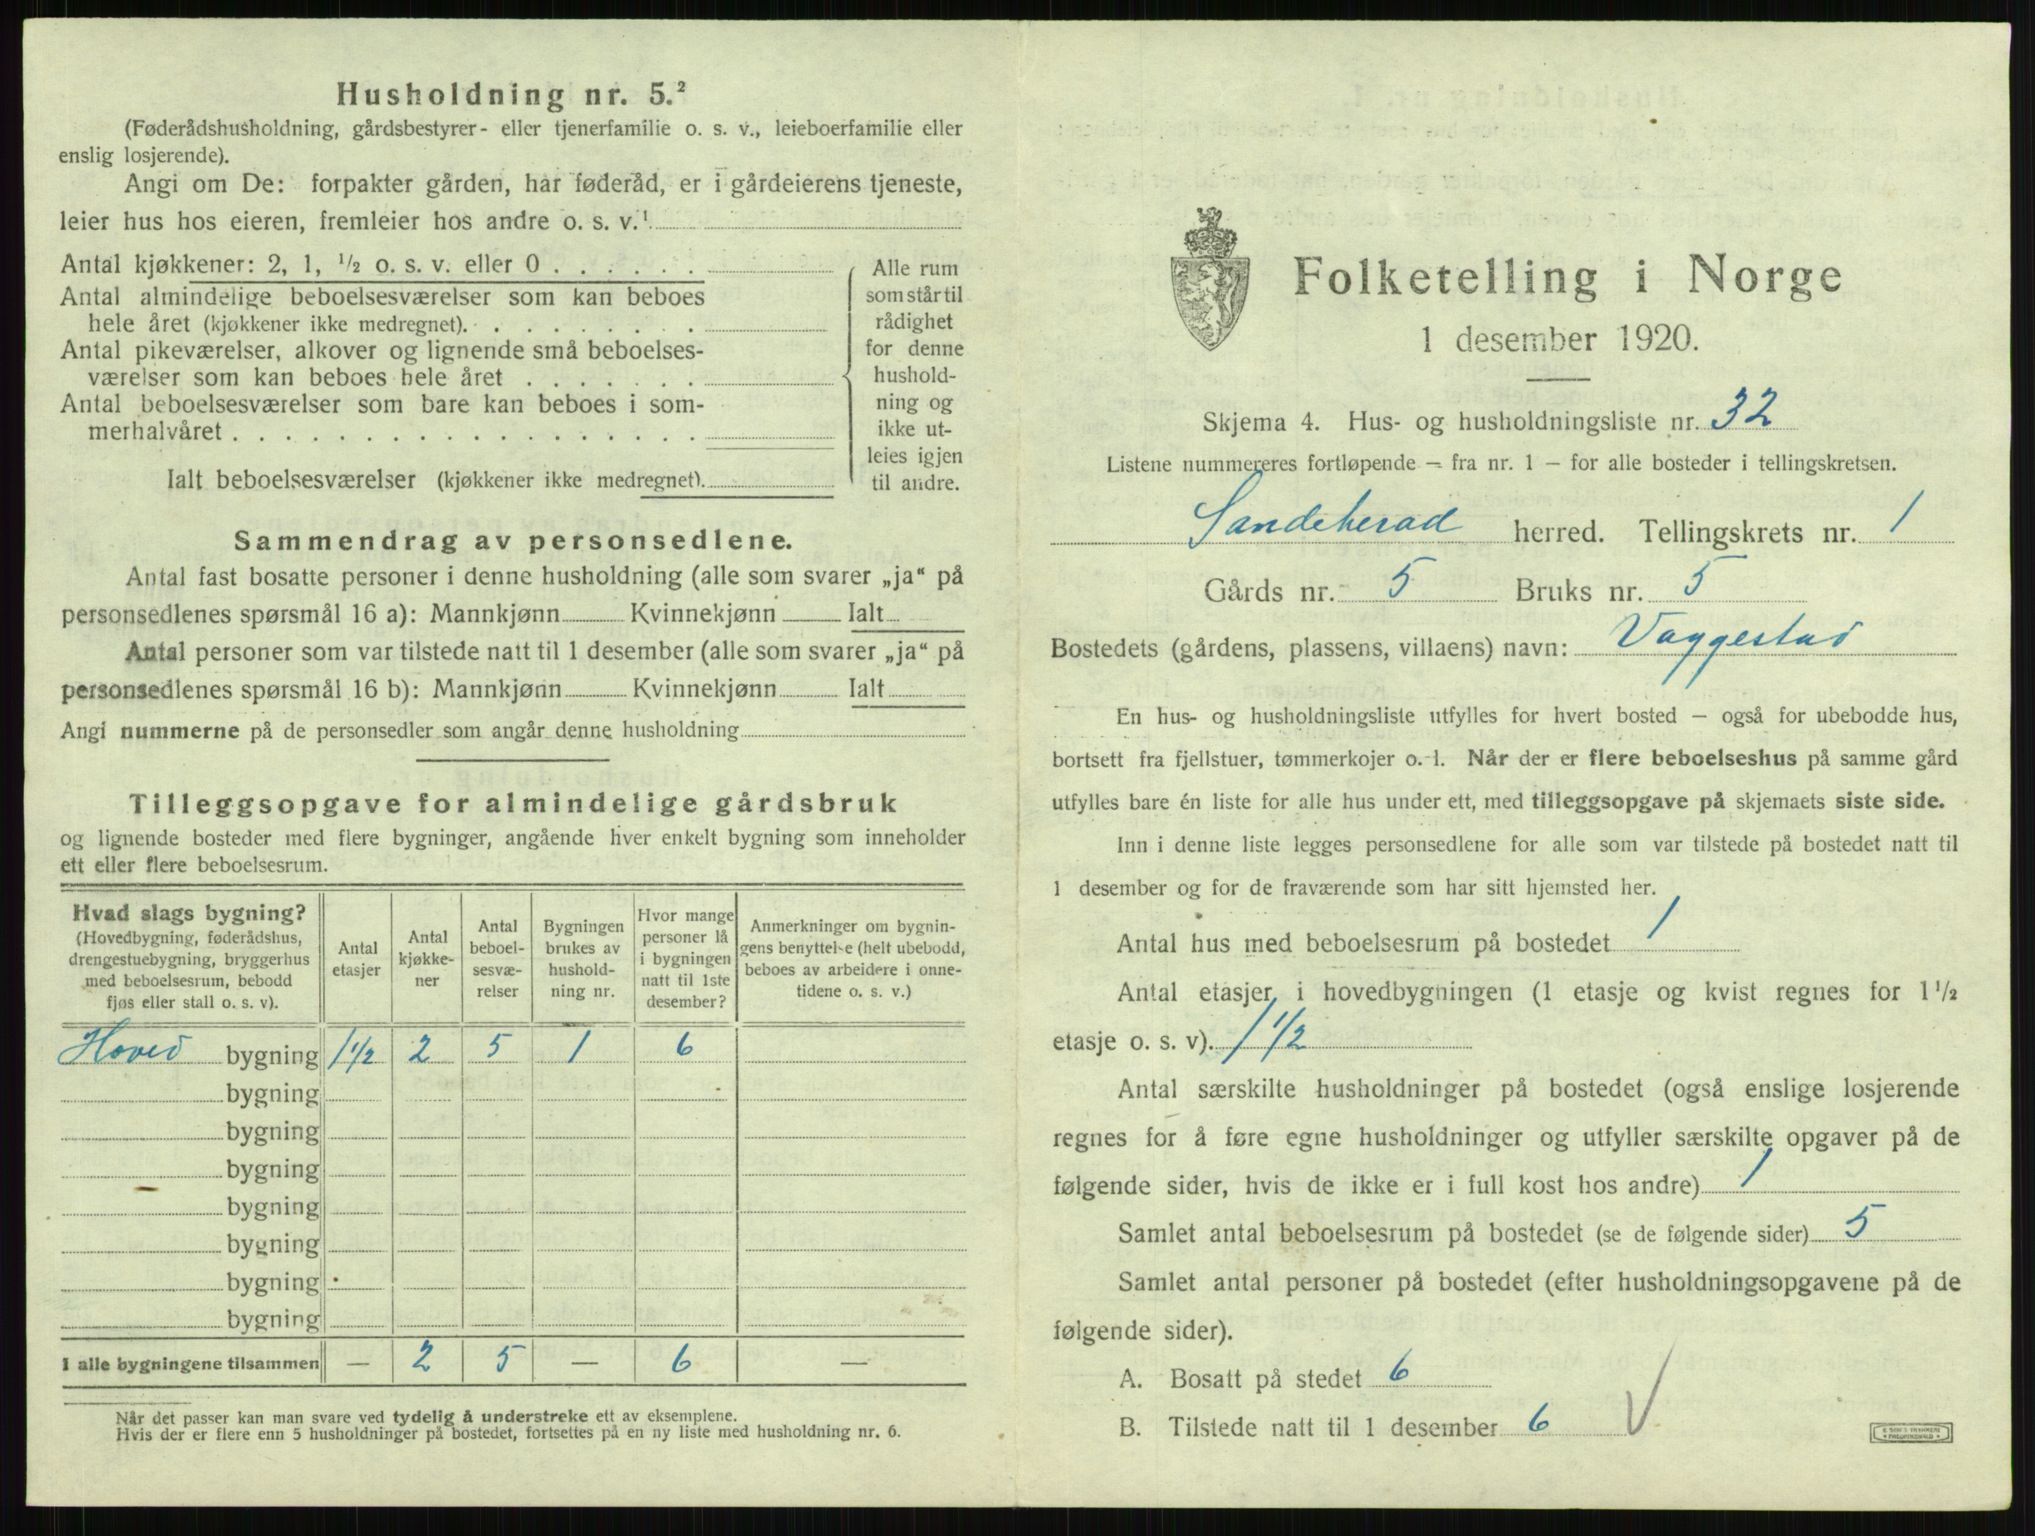 Husholdning nr. 5.²
(Føderådshusholdning, gårdsbestyrer- eller tjenerfamilie o. s. v., leieboerfamilie eller
enslig losjerende).
Angi om De: forpakter gården, har føderåd, er i gårdeierens tjeneste,
leier hus hos eieren, fremleier hos andre o. s. v.¹
Antal kjøkkener: 2, 1, ½ o. s. v. eller 0
Antal almindelige beboelsesværelser som kan beboes
hele året (kjøkkener ikke medregnet).
Antal pikeværelser, alkover og lignende små beboelses-
værelser som kan beboes hele året
Antal beboelsesværelser som bare kan beboes i som-
merhalvåret
Ialt beboelsesværelser (kjøkkener ikke medregnet).
Alle rum
som står til
rådighet
for denne
hushold-
ning og
ikke ut-
leies igjen
til andre.
Sammendrag av personsedlene.
Antal fast bosatte personer i denne husholdning (alle som svarer „ja“ på
personsedlenes spørsmål 16 a): Mannkjønn Kvinnekjønn Ialt
Antal personer som var tilstede natt til 1 desember (alle som svarer „ja“ på
personsedlenes spørsmål 16 b): Mannkjønn Kvinnekjønn Ialt
Angi nummerne på de personsedler som angår denne husholdning
Tilleggsopgave for almindelige gårdsbruk
og lignende bosteder med flere bygninger, angående hver enkelt bygning som inneholder
ett eller flere beboelsesrum.
Hvad slags bygning?
(Hovedbygning, føderådshus,
drengestuebygning, bryggerhus
med beboelsesrum, bebodd
fjøs eller stall o. s. v).
Antal
etasjer
Antal
kjøkke-
ner
Antal
beboel-
sesvæ-
relser
Bygningen
brukes av
hushold-
ning nr.
Hvor mange
personer lå
i bygningen
natt til 1ste
desember?
Anmerkninger om bygnin-
gens benyttelse (helt ubebodd,
beboes av arbeidere i onne-
tidene o. s. v.)
Hoved bygning 1½ 2 5 1 6
bygning
bygning
bygning
bygning
bygning
bygning
bygning
I alle bygningene tilsammen — 2 5 — 6 —
Når det passer kan man svare ved tydelig å understreke ett av eksemplene.
Hvis der er flere enn 5 husholdninger på bostedet, fortsettes på en ny liste med husholdning nr. 6.
Folketelling i Norge
1 desember 1920.
Skjema 4. Hus- og husholdningsliste nr. 32
Listene nummereres fortløpende — fra nr. 1 — for alle bosteder i tellingskretsen.
Sandeherad herred. Tellingskrets nr. 1
Gårds nr. 5 Bruks nr. 5
Bostedets (gårdens, plassens, villaens) navn: Vaggestad
En hus- og husholdningsliste utfylles for hvert bosted — også for ubebodde hus,
bortsett fra fjellstuer, tømmerkojer o. l. Når der er flere beboelseshus på samme gård
utfylles bare én liste for alle hus under ett, med tilleggsopgave på skjemaets siste side.
Inn i denne liste legges personsedlene for alle som var tilstede på bostedet natt til
1 desember og for de fraværende som har sitt hjemsted her.
Antal hus med beboelsesrum på bostedet 1
Antal etasjer i hovedbygningen (1 etasje og kvist regnes for 1½
etasje o. s. v). 1½
Antal særskilte husholdninger på bostedet (også enslige losjerende
regnes for å føre egne husholdninger og utfyller særskilte opgaver på de
følgende sider, hvis de ikke er i full kost hos andre) 1
Samlet antal beboelsesrum på bostedet (se de følgende sider) 5
Samlet antal personer på bostedet (efter husholdningsopgavene på de
følgende sider).
A. Bosatt på stedet 6
B. Tilstede natt til 1 desember 6